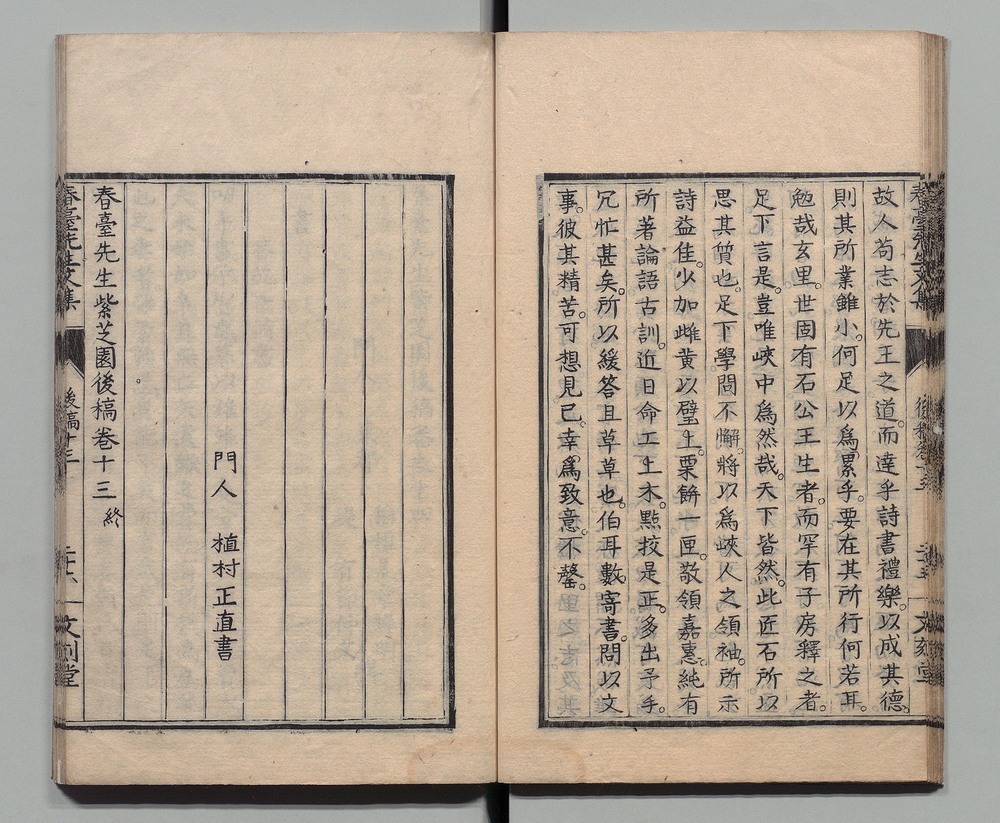 故人苟志於先王之道。而達乎詩書禮樂。以成其德。
則其所業雖小。何足以爲累乎。要在其所行何若耳。
勉哉玄里。世固有石公王生者。而罕有子房釋之者。
足下言是。豈唯峽中爲然哉。天下皆然。此匠石所以
思其質也。足下學問不懈。將以爲峽人之領袖。所示
詩益佳。少加雌黃以璧上。栗餅一匣。敬領嘉惠。純有
所著論語古訓。近日命工上木。點挍是正。多出予手。
冗忙甚矣。所以緩答且草草也。伯耳數寄書。問以文
事。彼其精苦。可想見已。幸爲致意。不罄。
門人 植村正直書
春臺先生紫芝園後稿卷十三終
春臺先生文集 後稿十三 文刻堂